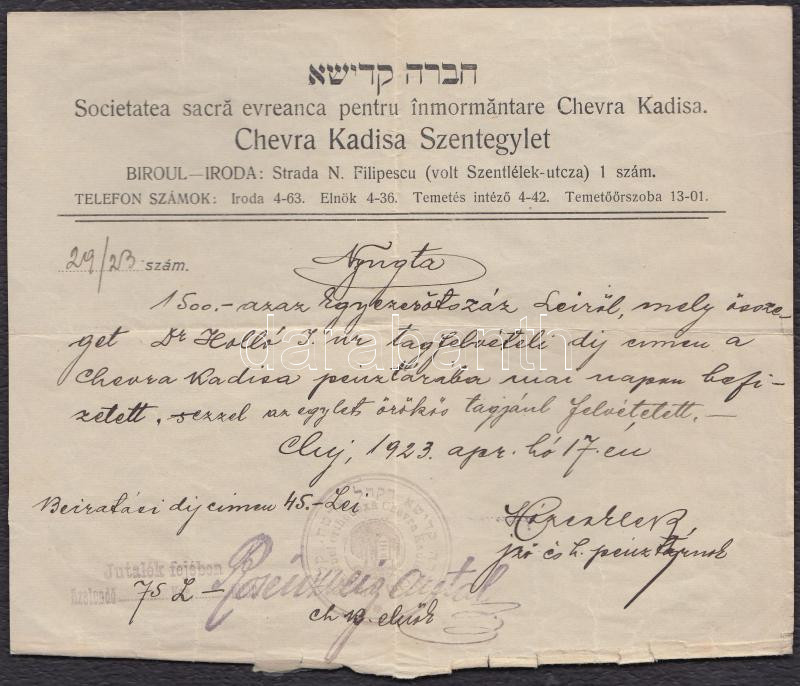 חברה קדישא
Societatea sacră evreanca pentru înmormăntare Chevra Kadisa.
Chevra Kadisa Szentegylet
BIROUL—IRODA: Strada N. Filipescu (volt Szentlélek-utcza) 1 szám.
TELEFON SZÁMOK: Iroda 4-63. Elnök 4-36. Temetés intéző 4-42. Temetőőrszoba 13-01.
29/23 szám.
Nyugta
1500.- azaz Egyezerötszáz Leiről, mely össze-
get Dr Holló I. úr tagfelvételi dij cimen a
Chevra Kadisa pénztárába mai napon befi-
zetett, s ezzel az egylet örökös tagjául felvétetett.—
Cluj, 1923. apr. hó 17.-én
Beiratási dij cimen 45.- Lei
izr. és h. pénztárnok
Jutalék fejében
75 L—
Rosenzweig
ch k. elnök
darabanth